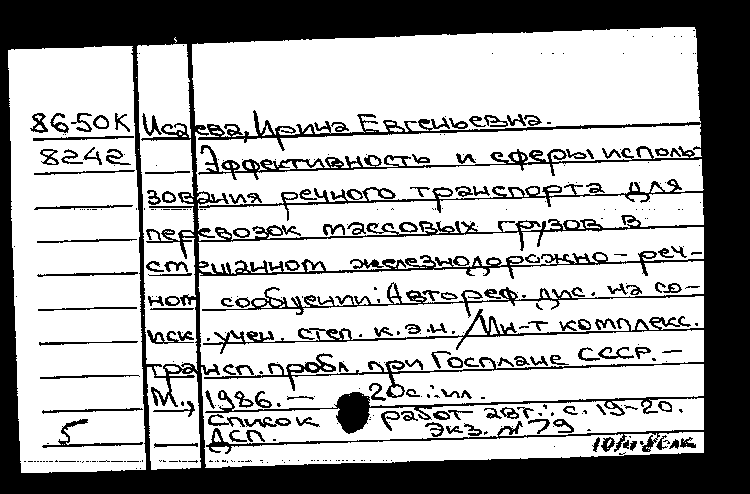 86-50К Исаева, Ирина Евгеньевна.
8242 Эффективность и сферы исполь-
зования речного транспорта для
перевозок массовых грузов в
смешанном железнодорожно-реч-
ном сообщении: Автореф. дис. на со-
иск. учен. степ. к.э.н. / Ин-т комплекс.
трансп. пробл. при Госплане СССР. —
М., 1986. — 20с.: ил.
список работ авт.: с. 19-20.
5 ДСП. Экз. № 79